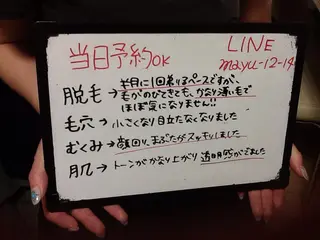 当日予約OK
LINE
mayu-12-14
脱毛→半月に1回来るペースですが、
毛がのびてきても、かなり薄い毛で
ほぼ気になりません!!
毛穴→小さくなり目立たなくなりました
むくみ→顔回り、まぶたがスッキリしました
肌→トーンがかなり上がり透明感がでました